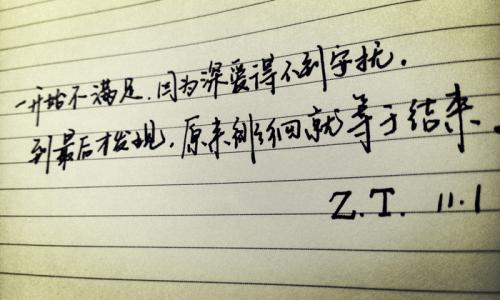 一开始不满足，因为深爱得不到守护，
到最后才发现，原来徘徊就等于结束。
Z.T. 11.1